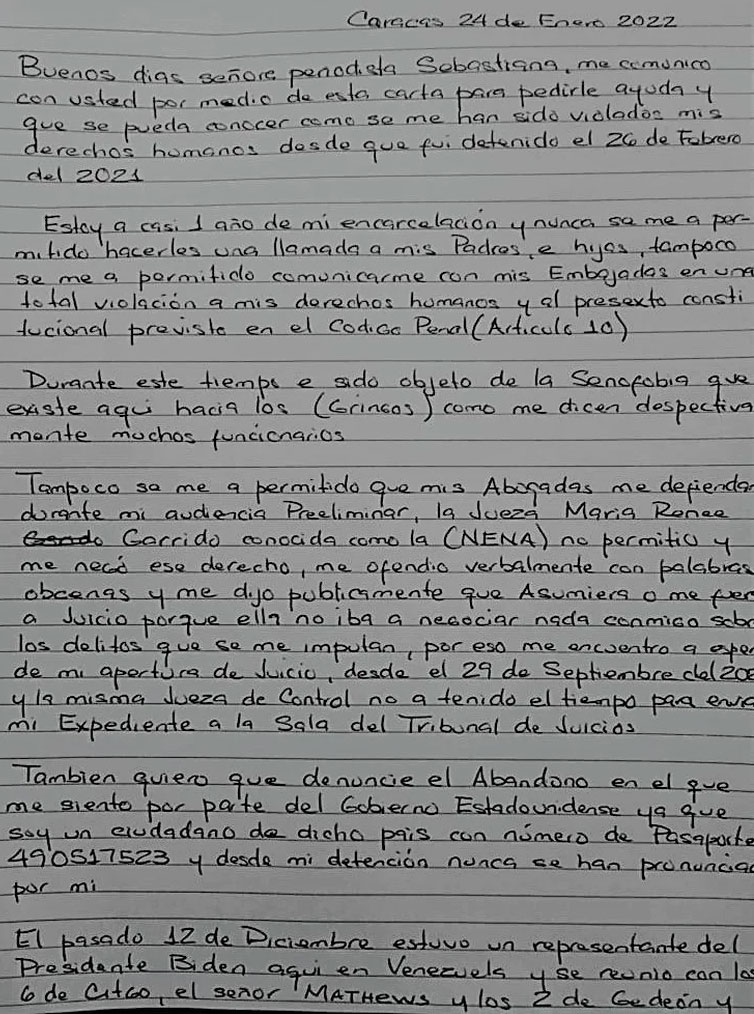 Caracas 24 de Enero 2022
Buenos dias señora periodista Sebastiana, me comunico
con usted por medio de esta carta para pedirle ayuda y
que se pueda conocer como se me han sido violados mis
derechos humanos desde que fui detenido el 26 de Febrero
del 2021
Estoy a casi 1 año de mi encarcelación y nunca se me a per-
mitido hacerles una llamada a mis Padres, e hijos, tampoco
se me a permitido comunicarme con mis Embajadas en una
total violación a mis derechos humanos y al presexto consti
tucional previsto en el Codigo Penal (Articulo 10)
Durante este tiempo e sido objeto de la Senofobia que
existe aqui hacia los (Gringos) como me dicen despectiva
mente muchos funcionarios
Tampoco se me a permitido que mis Abogadas me defiendan
durante mi audiencia Preeliminar, la Jueza Maria Renee
Garrido conocida como la (NENA) no permitio y
me negó ese derecho, me ofendio verbalmente con palabras
obcenas y me dijo publicamente que Asumiera o me fuer
a Juicio porque ella no iba a negociar nada conmigo sobr
los delitos que se me imputan, por eso me encuentro a espe
de mi apertura de Juicio, desde el 29 de Septiembre del 202
y la misma Jueza de Control no a tenido el tiempo para envia
mi Expediente a la Sala del Tribunal de Juicios
Tambien quiero que denuncie el Abandono en el que
me siento por parte del Gobierno Estadounidense ya que
soy un ciudadano de dicho pais con número de Pasaporte
490517523 y desde mi detención nunca se han pronunciad
por mi
El pasado 12 de Diciembre estuvo un representante del
Presidente Biden aqui en Venezuela y se reunio con los
6 de Citgo, el señor MATHEWS y los 2 de Gedeón y